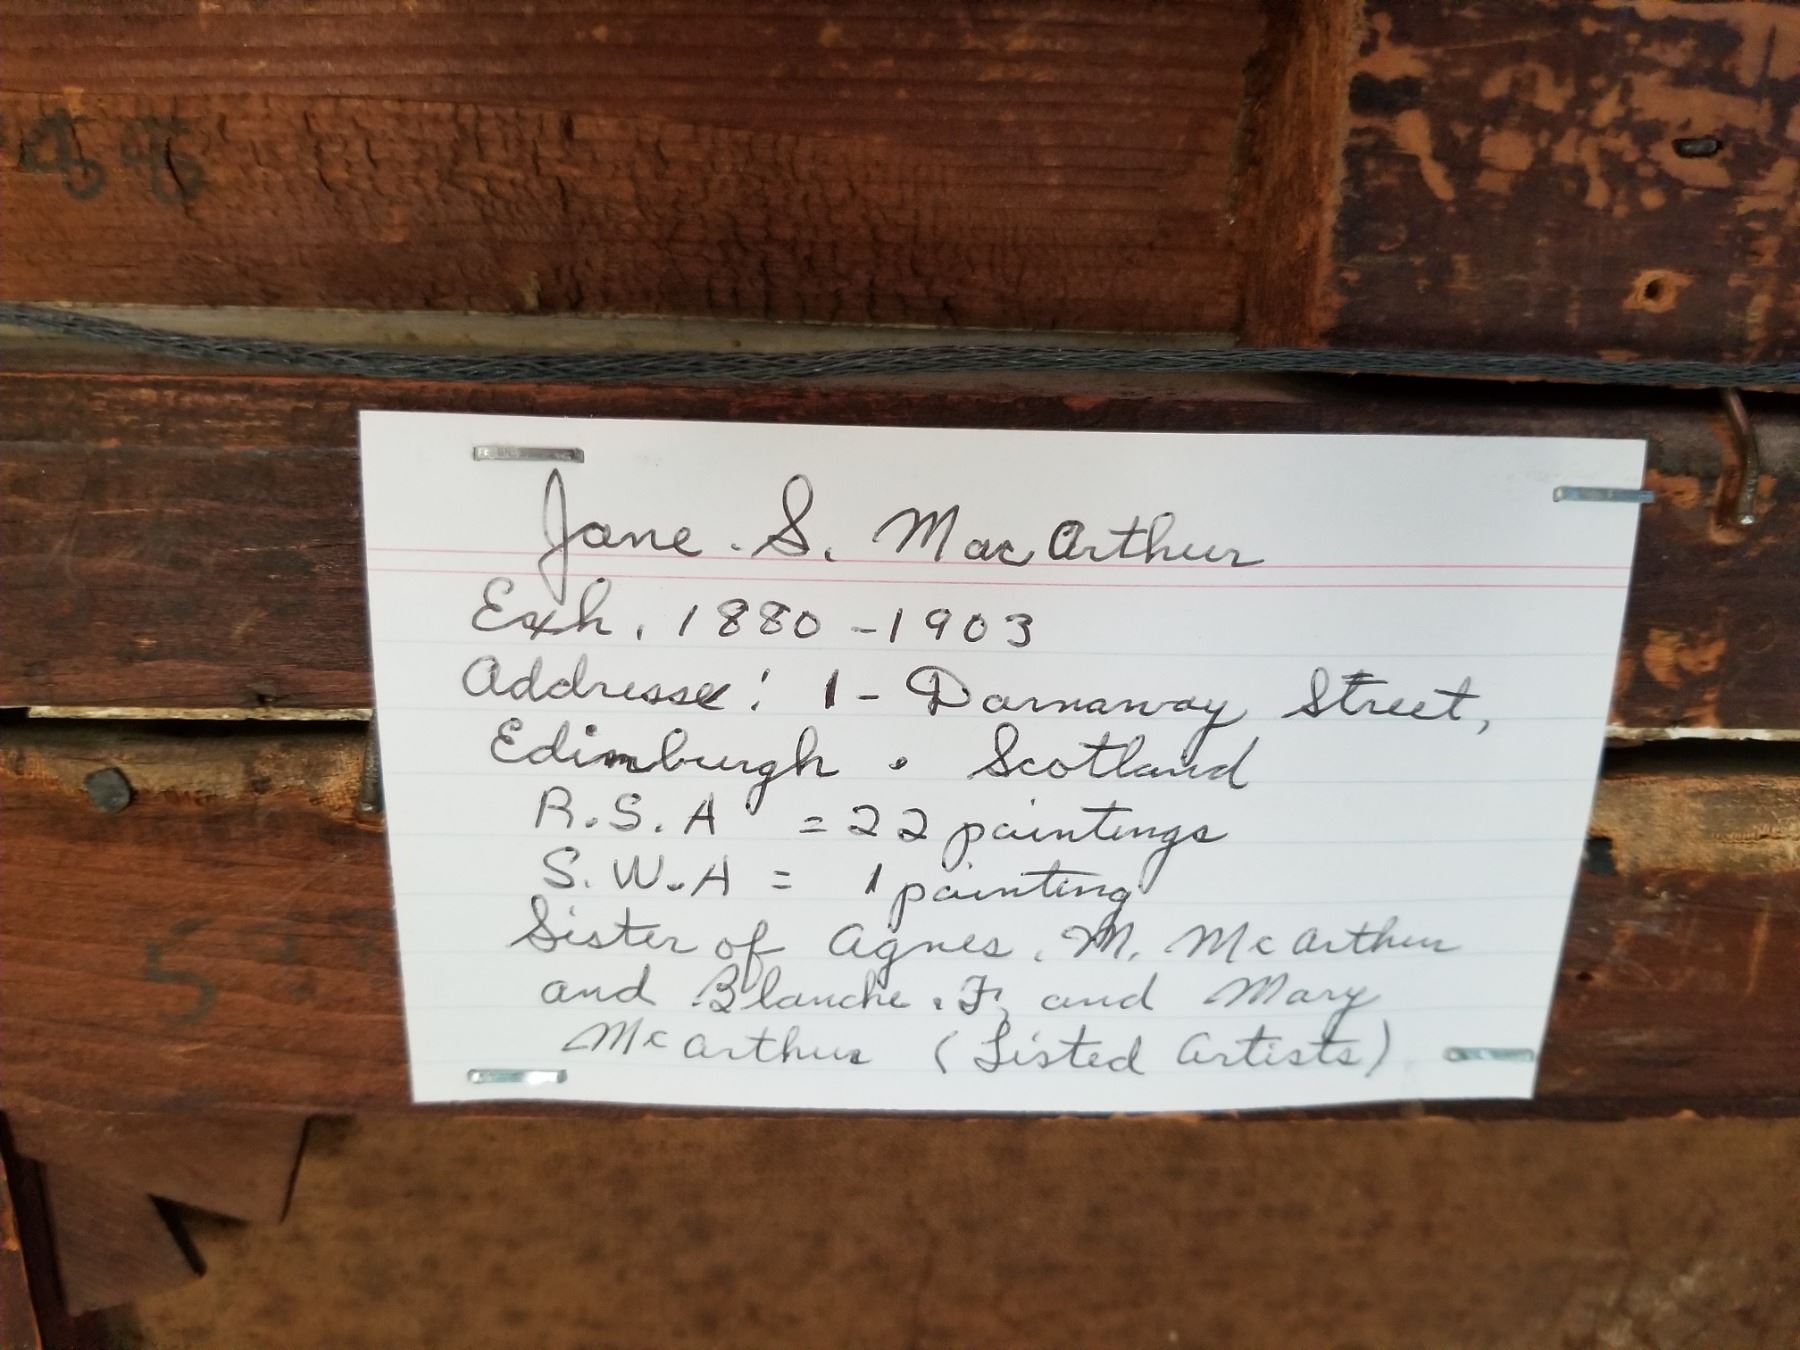 46 46
Jane. S. MacArthur
Exh. 1880-1903
Addresse: 1- Darnaway Street,
Edinburgh. Scotland
R.S.A = 22 paintings
S.W.A = 1 painting
Sister of Agnes. M. McArthur
and Blanche. F, and Mary
McArthur (Listed Artists)
5